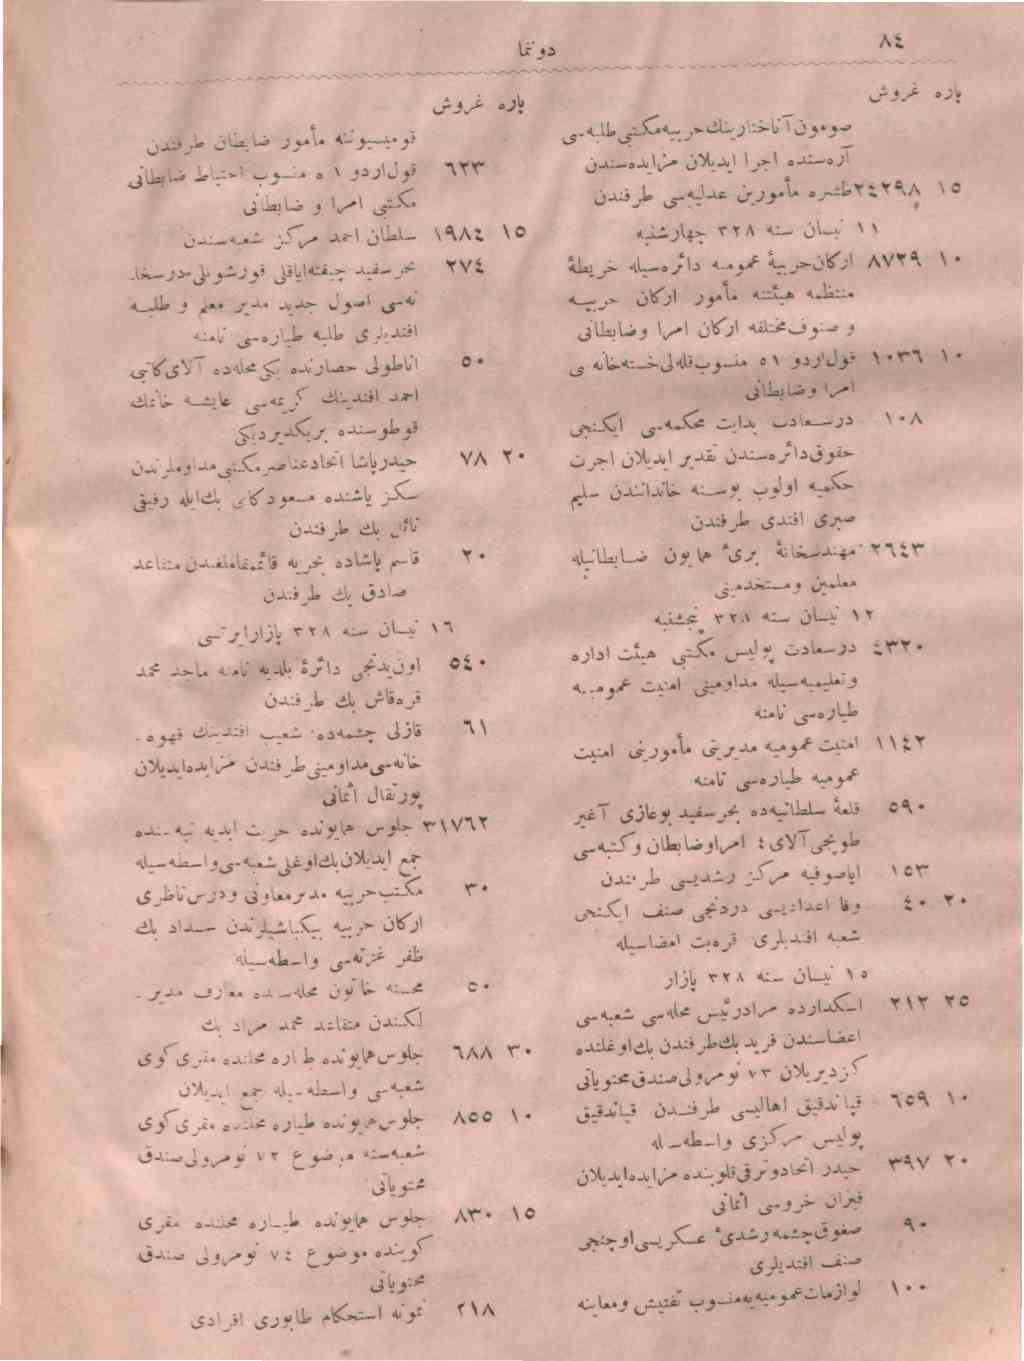 ٨٤
دوننما
پاره غروش
صوموت آناختارينك حربيه مكتبى طلبه سى
آره سنده اجرا ايديلان مزايده سندن
١٥ ٢٤٢٩٨ طشره مأمورين عدليه سى طرفندن
١١ نيسان سنه ٣٢٨ چهارشنبه
١٠ ٨٧٣٩ اركان حربيۀ عموميه دائره سيله خريطۀ
منتظمه هيئتنه مأمور اركان حربيه
و صنوف مختلفه اركان امرا وضابطانى
١٠ ١٠٣٦ قول اردو ٥١ منسوب قله لى خسته خانه سى
امرا وضابطانى
١٠٨ درسعادت بدايت محكمه سى ايكنجى
حقوق دائره سندن تقدير ايديلان اجرت
حكميه اولوب بوسنه خانداندن سليم
صبرى افندى طرفندن
٢٦٤٣ مهندسخانۀ برئ همايون ضابطانيله
معلمين ومستخدمينى
١٢ نيسان سنه ٣٢٨ پنجشنبه
٤٣٢٠ درسعادت پوليس مكتبى هيئت اداره
وتعليميه سيله مداومينى امنيت عموميه
طياره سى نامنه
١١٤٢ امنيت عموميه مديريتى مأمورينى امنيت
عموميه طياره سى نامنه
٥٩٠ قلعۀ سلطانيه ده بحرسفيد بوغازى آغير
طوپجى آلاى ٤ امرا وضابطان وكتبه سى
١٥٣ اياصوفيه مركز رشديسى طرفندن
٢٠ ٤٠ وفا اعداديسى دردنجى صنف ايكنجى
شعبه افنديلرى قره بت امضاسيله
١٥ نيسان سنه ٣٢٨ پازار
٢٥ ٢١٢ اسكدارده مرادرئيس محله سى شعبه سى
اعضاسندن فريد بك طرفندن بك اوغلنده
كزديريلان ٧٣ نومرولى صندق محتوياتى
١٠ ٦٥٩ قپاندقيق اهاليسى طرفندن قپاندقيق
پوليس مركزى واسطه سيله
٢٠ ٣٩٧ حيدر اتحاد وترقى قلوبنده مزايده ايديلان
فيزان خروسى اثمانى
٩٠ صغوق چشمه رشدئ عسكريسى اوچنجى
صنف افنديلرى
١٠٠ لوازمات عموميه يه منسوب تفتيش ومعاينه
پاره غروش
قوميسيوننه مأمور ضابطان طرفندن
٦٢٣ قول اردو ٥١ منسوب احتياط ضابطانى
مكتبى امرا و ضابطانى
١٥ ١٩٨٤ سلطان احمد مركز شعبه سندن
٢٧٤ بحر سفيد چيفته اياقلى قورشونلى مدرسخا-
نه سى اصول جديد مدير معلم و طلبه
افنديلرى طلبه طياره سى نامنه
٥٠ اناطولى حصارنده يكى محله ده آلاى كاتبى
احمد افندينك كريمه سى عايشه خانمك
قوطوسنده بريكديرديكى
٢٠ ٧٨ حيدرپاشا اتحاد عناصر مكتبى مداوملرندن
سكز ياشنده مسعود كامى بك ايله رفيقى
نائل بك طرفندن
٢٠ قاسم پاشاده بحريه قائممقاملغندن متقاعد
صادق بك طرفندن
١٦ نيسان سنه ٣٢٨ پازارايرتسى
٥٤٠ اون يدنجى دائرۀ بلديه نامنه ماجد محمد
قره قاش بك طرفندن
٦١ قازلى چشمه ده شعيب افندينك قهوه-
خانه سى مداومينى طرفندن مزايده ايديلان
پورتقال اثمانى
٣١٧٦٢ جلوس همايونده حريت ابديه تپه سنده
جمع ايديلان بك اوغلى شعبه سى واسطه سيله
٣٠ مكتب حربيه مدير معاونى ودرس ناظرى
اركان حربيه بيكباشيلرندن سداد بك
ظفر غزته سى واسطه سيله
٥٠ محسنه خاتون محله سنده معارف مدير-
لكندن متقاعد محمد مراد بك
٣٠ ٦٨٨ جلوس همايونده طياره محلنده مقرى كوى
شعبه سى واسطه سيله جمع ايديلان
١٠ ٨٥٥ جلوس همايونده طياره محلنده مقرى كوى
شعبه سنه موضوع ٧٢ نومرولى صندق
محتوياتى
١٥ ٨٣٠ جلوس همايونده طياره محلنده مقرى
كوينده موضوع ٧٤ نومرولى صندق
محتوياتى
٢١٨ نمونه استحكام طابورى افرادى